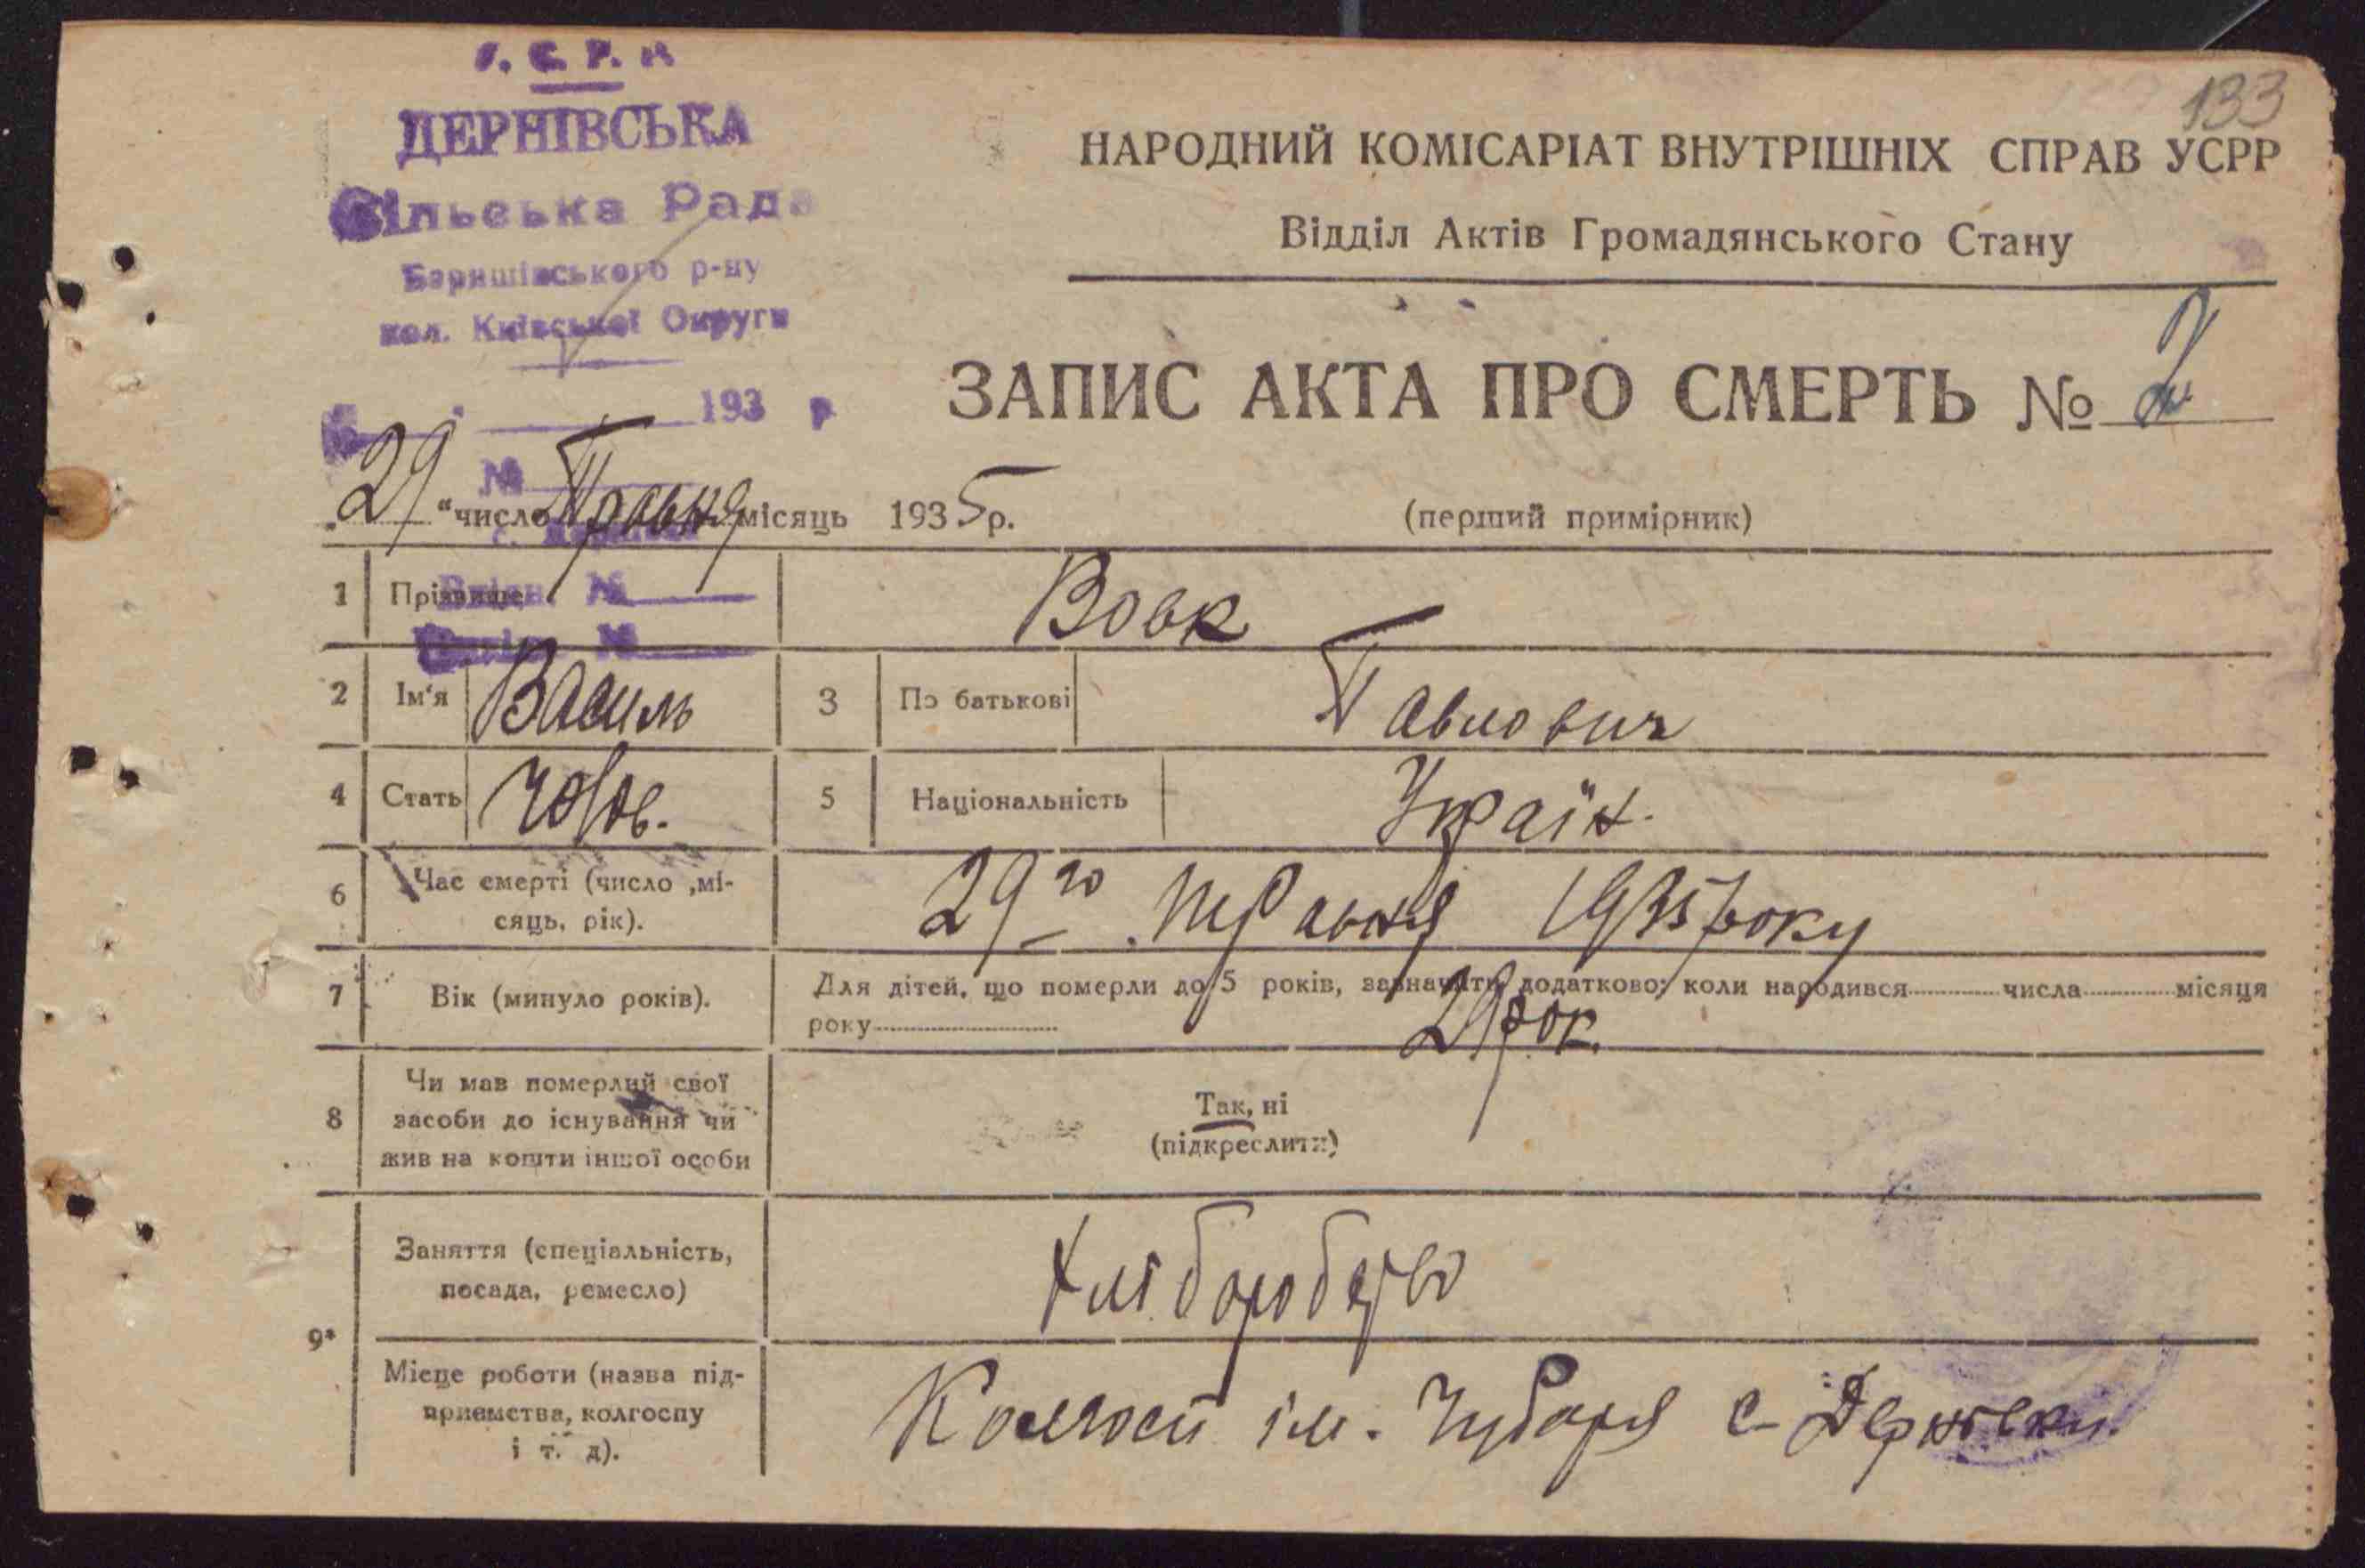 У. С. Р. Р.
ДЕРНІВСЬКА
Сільська Рада
Баришівського р-ну
кол. Київської Округи
193 р.
№
133
НАРОДНИЙ КОМІСАРІАТ ВНУТРІШНІХ СПРАВ УСРР
Відділ Актів Громадянського Стану
ЗАПИС АКТА ПРО СМЕРТЬ № 2
„29“ число Травня місяць 1935 р.
(перший примірник)
1 Прізвище Вовк
2 Ім'я Василь 3 По батькові Павлович
4 Стать Чолов. 5 Національність Україн.
6 Час смерті (число ,мі-
сяць, рік). 29го травня 1935 року
7 Вік (минуло років). Для дітей, що померли до 5 років, зазначити додатково: коли народився числа місяця
року 29 рок.
8 Чи мав померлий свої
засоби до існування чи
жив на кошти іншої особи
Так, ні
(підкреслити)
9* Заняття (спеціальність,
посада, ремесло) Хліборобство
Місце роботи (назва під-
приємства, колгоспу
і т. д). Колгосп ім. Чубаря с. Дернівки.